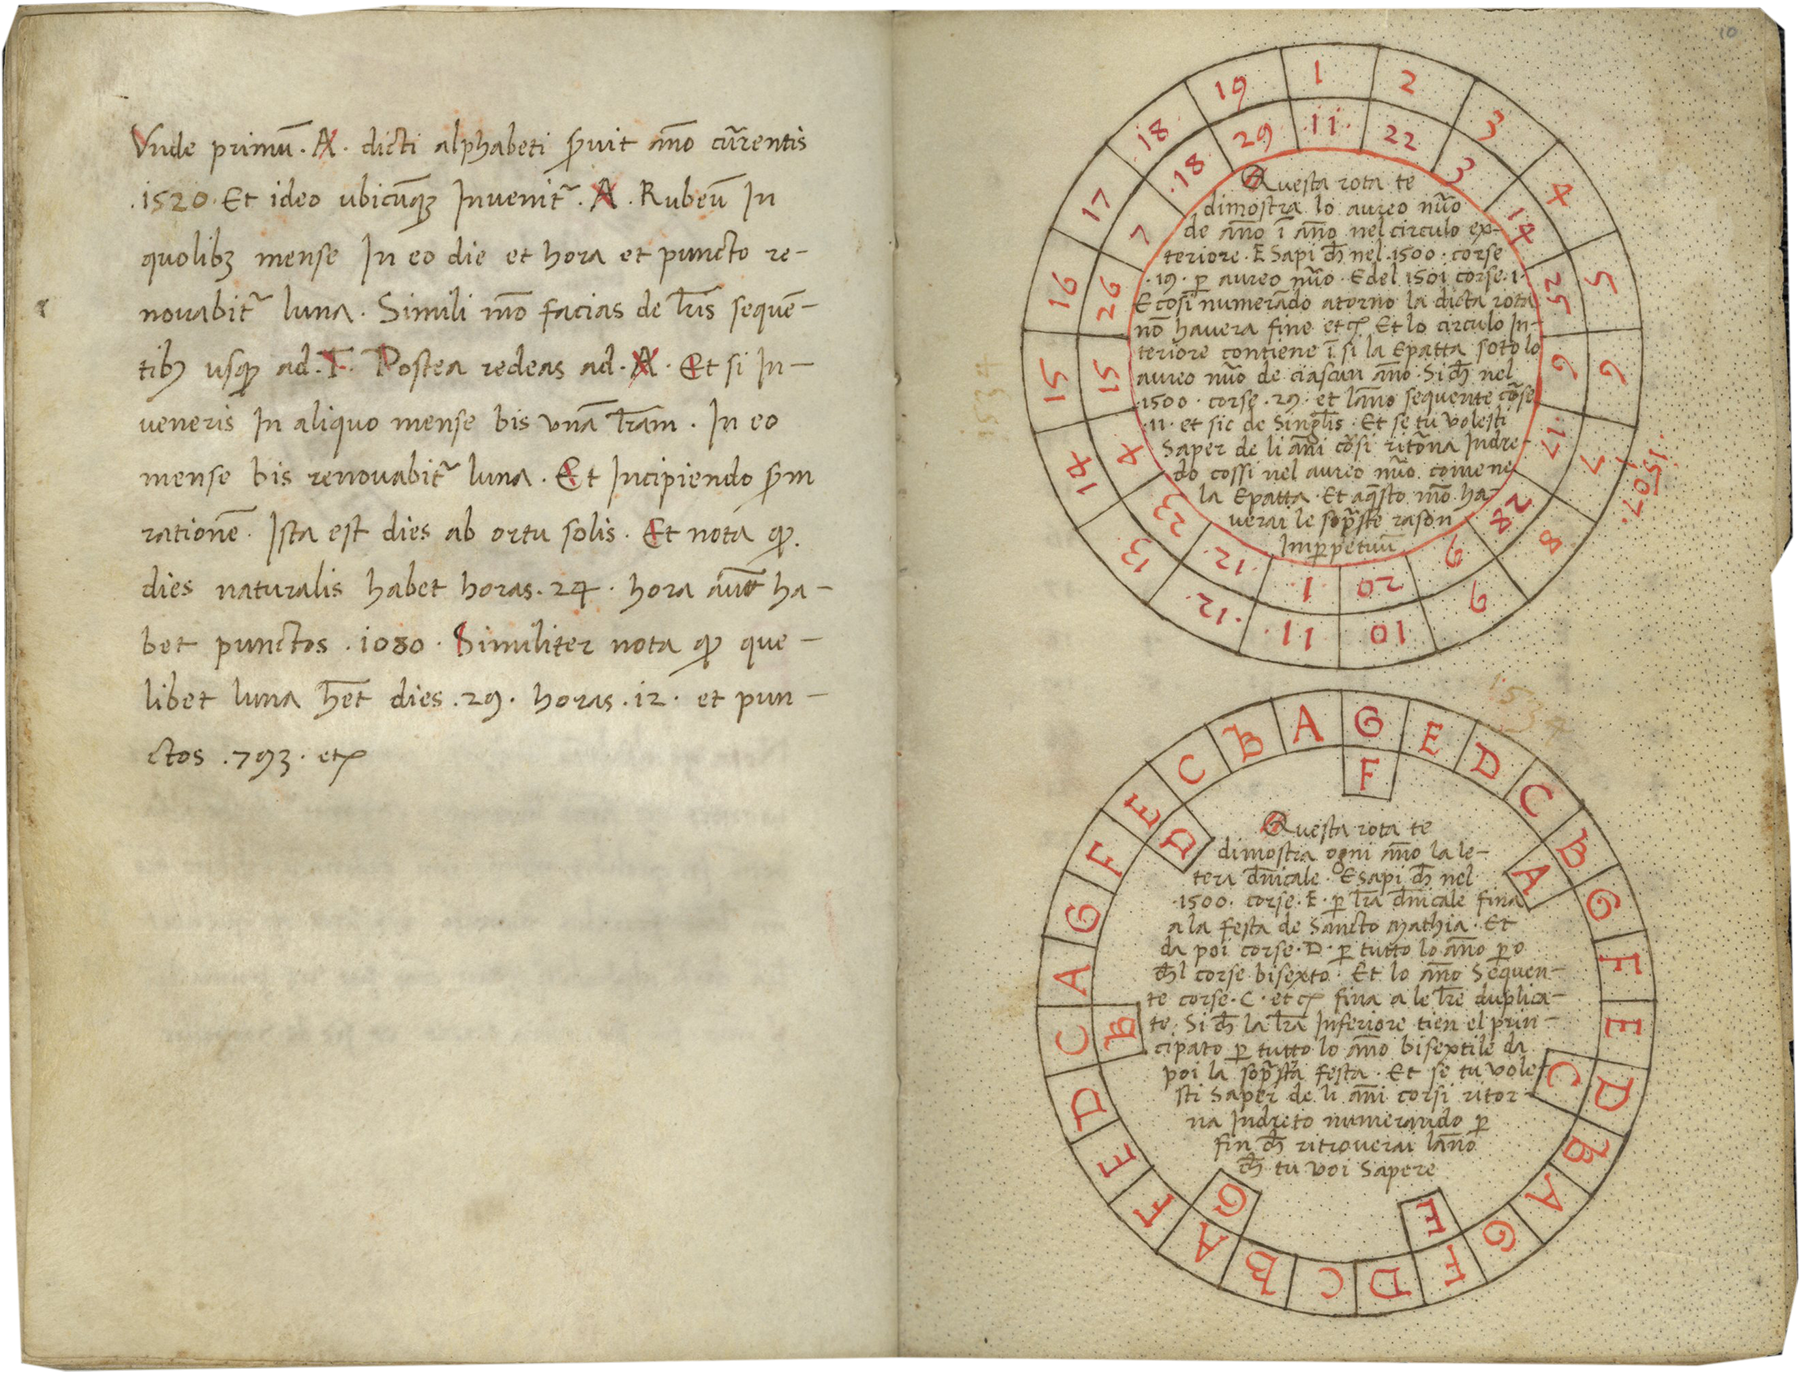 Vnde primū. A. dicti alphabeti ẜuit āno cūrentis
.1520. Et ideo ubicūqȝ Inuenit᷑. A. Rubeū In
quolibȝ mense In eo die et hora et puncto re-
nouabit᷑ luna. Simili mō facias de l̄ris sequē-
tibȝ usqȝ ad. F. Postea redeas ad. A. Et si In-
ueneris In aliquo mense bis vnā l̄ram. In eo
mense bis renouabit᷑ luna. Et Incipiendo
rationē. Ista est dies ab ortu solis. Et nota ꝙ.
dies naturalis habet horas. 24. hora aūt ha-
bet punctos .1080. Similiter nota ꝙ que-
libet luna h̄et dies .29. horas .12. et pun-
ctos .793. etc
10
1 2 3 4 5 6 7 8 9 10 11 .12. 13 14 15 16 17 18 19
11 22 3 14 25 6 17 28 9 20 1 12. 23 4 15 26 7 .18 29
Questa rota te
dimostra lo aureo nūo
de āno ī āno nel circulo ex-
teriore. E Sapi ch̄ nel .1500. corse
.19. ꝑ aureo nūo. E del 1501 corse .1.
E cosi numerādo atorno la dicta rota
nō hauera fine etc Et lo circulo In-
teriore contiene ī si la Epatta soto lo
aureo nūo de ciascun āno. Si ch̄ nel
.1500. corse .29. et lāno sequente cōrse
.11. et sic de Singl̄is. Et se tu volesti
Saper de li āni cōrsi ritōrna Indre-
do cossi nel aureo nūo. comene
la Epatta. Et aq̄sto mō ha-
uerai le sopr̄ste rason
Imꝑpetuū
.1507.
1534
1534
G E D C B G F E D B A G F D C B A F E D C A G F E C B A
F A C E G B D
Questa rota te
dimostra ogni āno la le-
tera dn̄icale. E sapi ch̄ nel
.1500. corse. E. ꝑ l̄ra dn̄icale fina
a la festa de Sancto Mathia. Et
da poi corse. D. ꝑ tutto lo āno ꝑ o
ch̄l corse bisexto. Et lo āno Sequen-
te corse. C. etc fina a le l̄re duplica-
te. Si ch̄ la l̄ra Inferiore tien el prin-
cipato ꝑ tutto lo āno bisextile da
poi la sopr̄sta festa. Et se tu vole-
sti Saper de li āni corsi ritor
na Indreto numerando ꝑ
fin ch̄ ritrouerai lāno
ch̄ tu voi Sapere